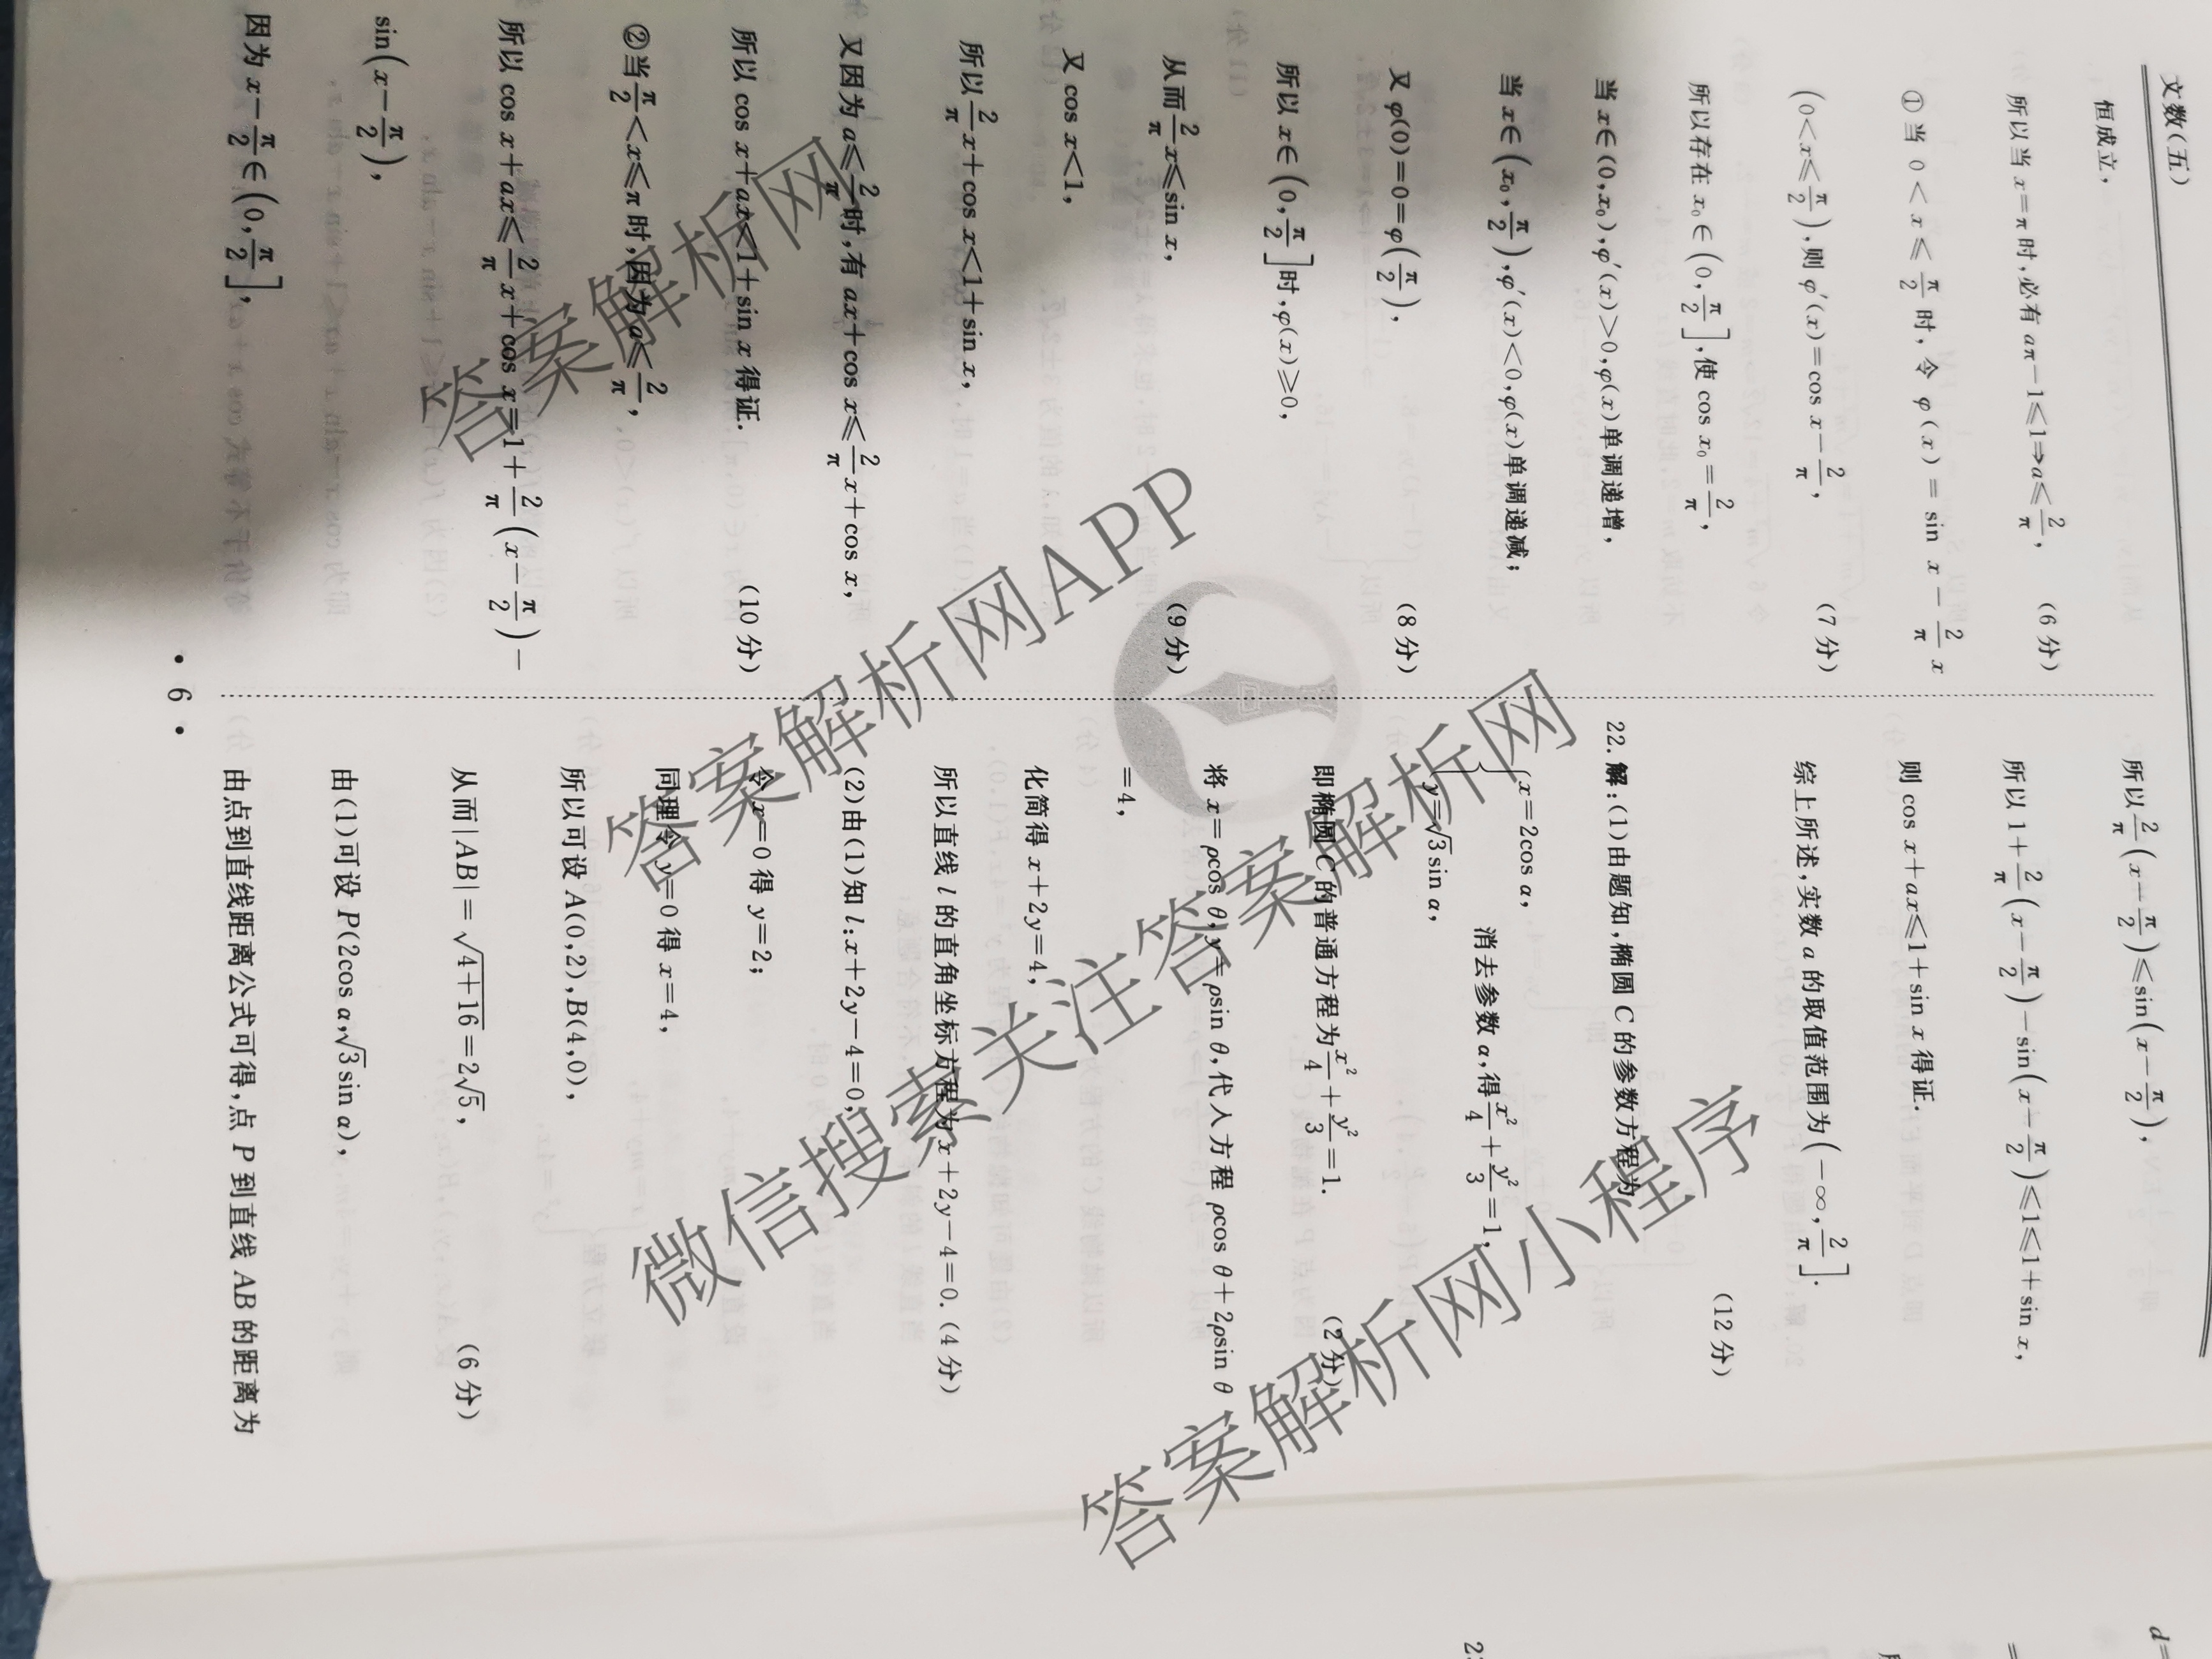 文数(五)
恒成立,
所以当 x=π 时,必有 aπ-1≤1⇒a≤2/π, (6 分)
①当 0<x≤π/2 时,令 φ(x)=sin x-2/π x
(0<x≤π/2),则 φ′(x)=cos x-2/π, (7 分)
所以存在 x₀∈(0,π/2],使 cos x₀=2/π,
当 x∈(0,x₀),φ′(x)>0,φ(x)单调递增,
当 x∈(x₀,π/2),φ′(x)<0,φ(x)单调递减;
又 φ(0)=0=φ(π/2), (8 分)
所以 x∈(0,π/2]时,φ(x)≥0,
从而2/π x≤sin x, (9 分)
又 cos x<1,
所以2/π x+cos x<1+sin x,
又因为 a≤2/π时,有 ax+cos x≤2/π x+cos x,
所以 cos x+ax<1+sin x 得证. (10 分)
②当π/2<x≤π 时,因为 a≤2/π,
所以 cos x+ax≤2/π x+cos x=1+2/π(x-π/2)-
sin(x-π/2),
因为 x-π/2∈(0,π/2],
所以2/π(x-π/2)≤sin(x-π/2),
所以 1+2/π(x-π/2)-sin(x-π/2)≤1≤1+sin x,
则 cos x+ax≤1+sin x 得证.
综上所述,实数 a 的取值范围为(-∞,2/π].
(12 分)
22.解:(1)由题知,椭圆 C 的参数方程为
{x=2cos α,
y=√3sin α,
消去参数 α,得x²/4+y²/3=1,
即椭圆 C 的普通方程为x²/4+y²/3=1. (2 分)
将 x=ρcos θ,y=ρsin θ,代入方程 ρcos θ+2ρsin θ
=4,
化简得 x+2y=4,
所以直线 l 的直角坐标方程为 x+2y-4=0. (4 分)
(2)由(1)知 l:x+2y-4=0,
令 x=0 得 y=2;
同理令 y=0 得 x=4,
所以可设 A(0,2),B(4,0),
从而|AB|=√4+16=2√5, (6 分)
由(1)可设 P(2cos α,√3sin α),
由点到直线距离公式可得,点 P 到直线 AB 的距离为
• 6 •
d=
=
答案解析网
答案解析网APP
微信搜索关注答案解析网
答案解析网小程序